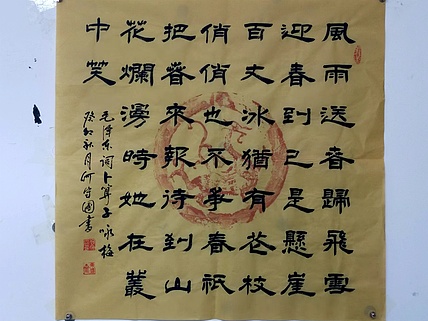 風雨送春歸飛雪
迎春到已是懸崖
百丈冰猶有花枝
俏俏也不爭春祇
把春來報待到山
花爛漫時她在叢
中笑
毛泽东词卜算子咏梅
癸卯秋月何守國書